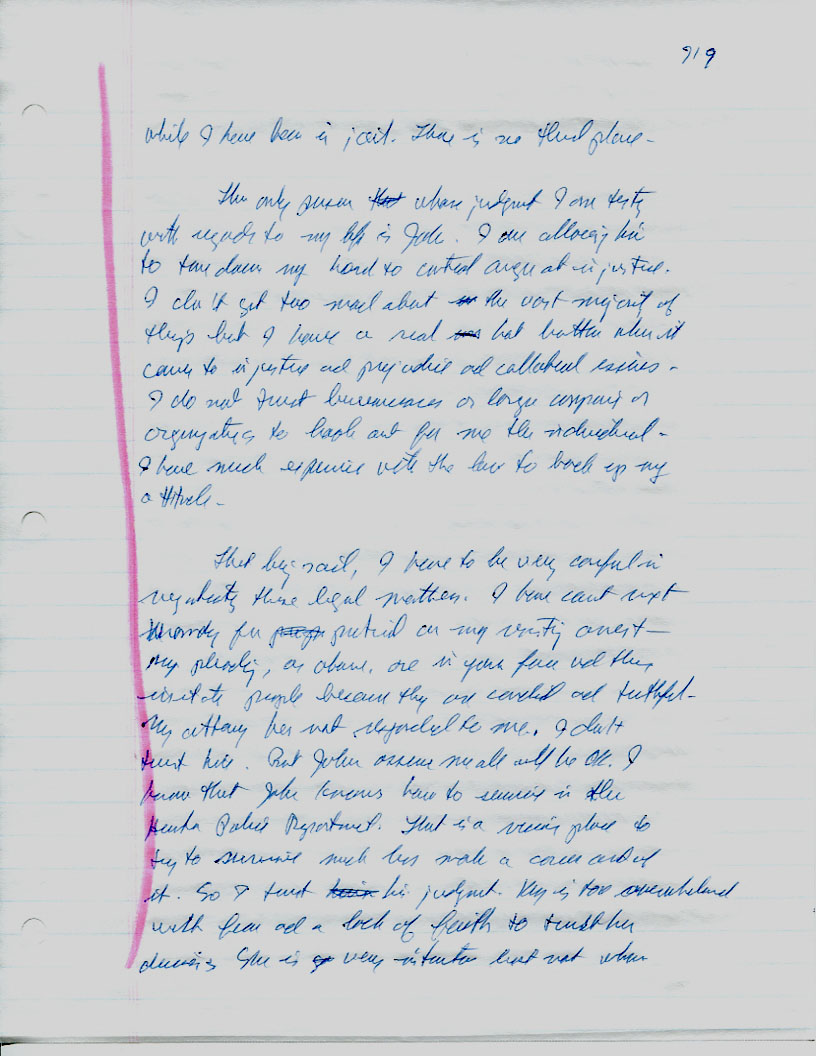 919
while I have been in jail. There is no third place -
The only person that whose judgment I am
with regards to my life is John. I am allowing him
to tone down my hard to control anger at injustice.
I don't get too mad about the vast majority of
things but I have a real hot button when it
comes to injustice and prejudice and collateral issues -
I do not trust bureaucracies or large companies or
organizations to look out for me the individual -
I have much experience with the law to back up my
attitude -
That being said, I have to be very careful in
negotiating these legal matters. I have court next
for pretrial on my arrest -
My pleadings, as above, are in your face and they
irritate people because they are candid and truthful -
My attorney has not responded to me. I don't
trust him. But John assures me all will be OK. I
know that John knows how to survive in the
Police Department. That is a place to
try to survive much less make a career out of
it. So I trust his judgment. is too overwhelmed
with fear and a lack of faith to trust her
decisions She is very but not when